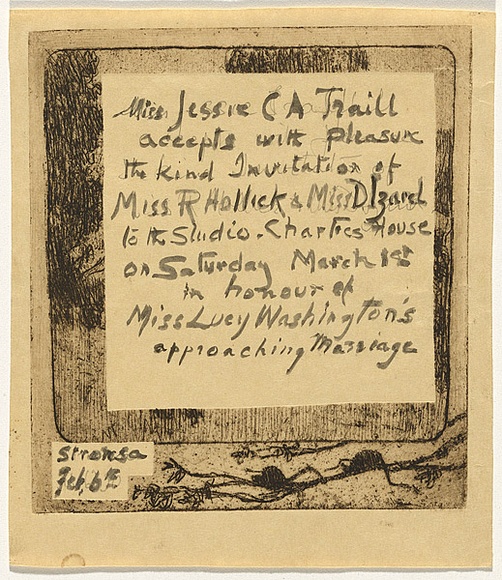 Miss Jessie C A Traill
accepts with pleasure
the kind Invitation of
Miss R Hollick & Miss D Izard
to the Studio. Charteris House
on Saturday March 1st
in honour of
Miss Lucy Washington's
approaching Marriage
Feb, 6th